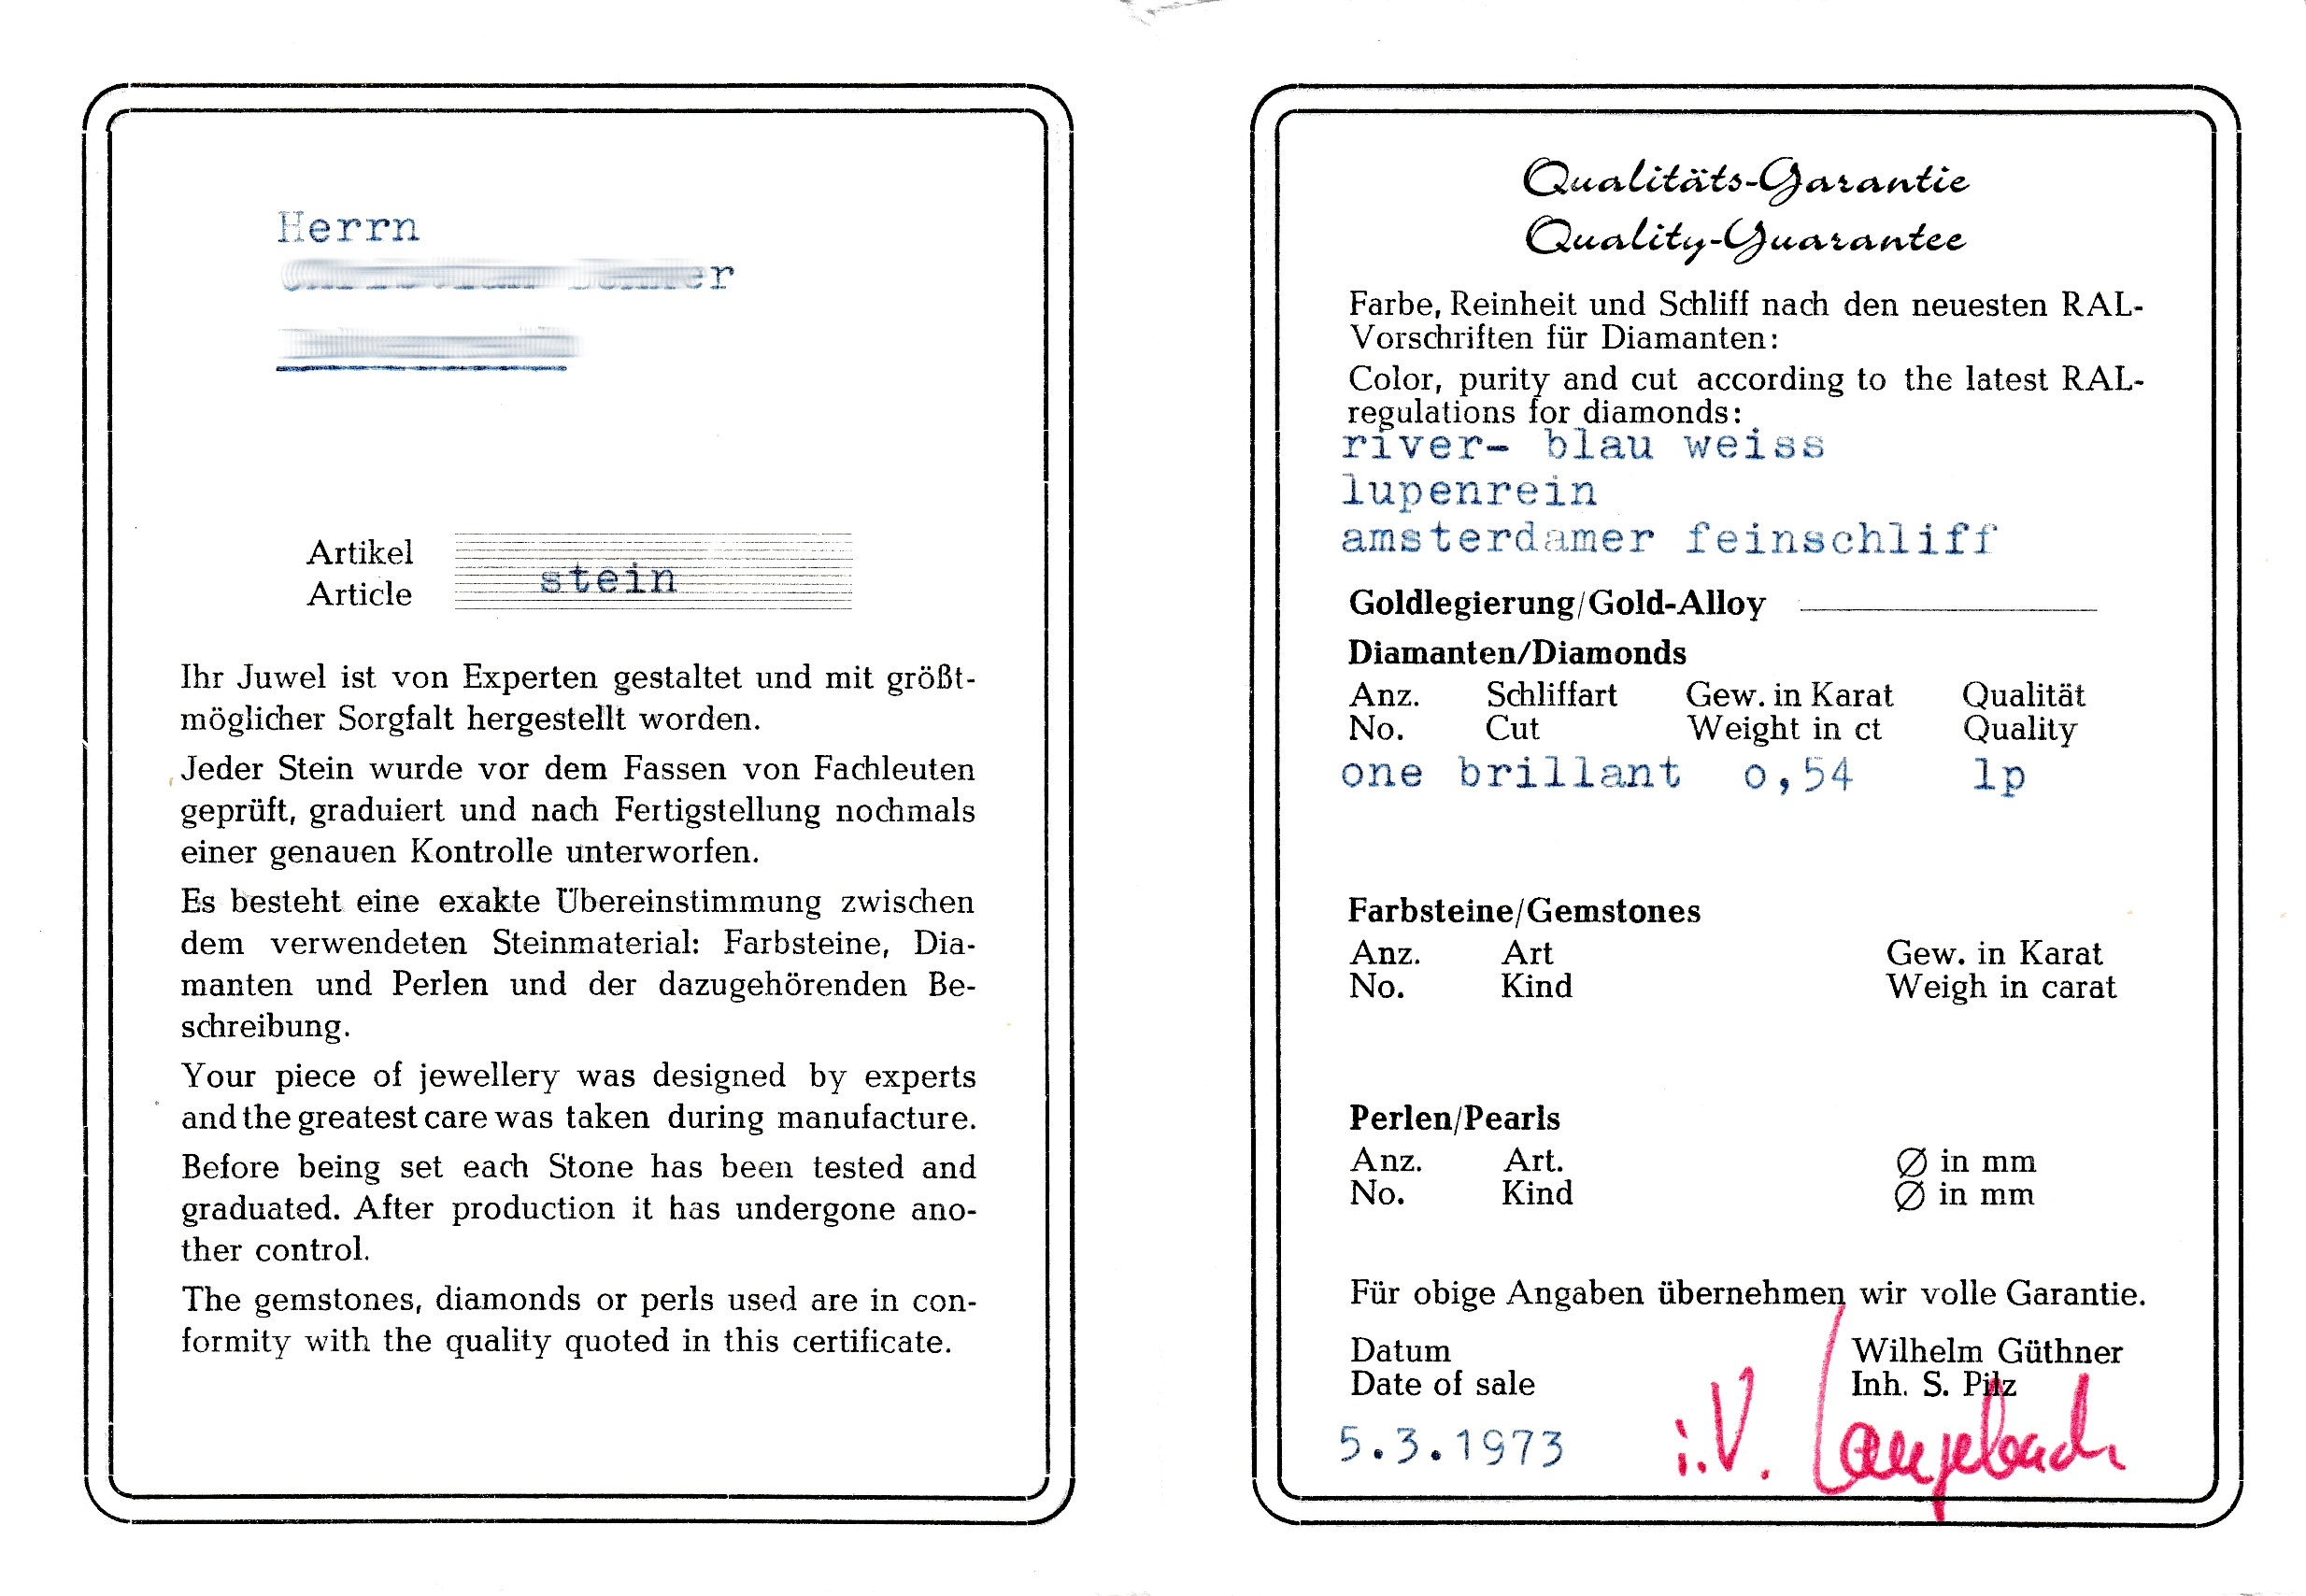 Herrn
Artikel
Article
stein
Ihr Juwel ist von Experten gestaltet und mit größt-
möglicher Sorgfalt hergestellt worden.
Jeder Stein wurde vor dem Fassen von Fachleuten
geprüft, graduiert und nach Fertigstellung nochmals
einer genauen Kontrolle unterworfen.
Es besteht eine exakte Übereinstimmung zwischen
dem verwendeten Steinmaterial: Farbsteine, Dia-
manten und Perlen und der dazugehörenden Be-
schreibung.
Your piece of jewellery was designed by experts
and the greatest care was taken during manufacture.
Before being set each Stone has been tested and
graduated. After production it has undergone ano-
ther control.
The gemstones, diamonds or perls used are in con-
formity with the quality quoted in this certificate.
Qualitäts-Garantie
Quality-Guarantee
Farbe, Reinheit und Schliff nach den neuesten RAL-
Vorschriften für Diamanten:
Color, purity and cut according to the latest RAL-
regulations for diamonds:
river- blau weiss
lupenrein
amsterdamer feinschliff
Goldlegierung/Gold-Alloy
Diamanten/Diamonds
Anz. Schliffart Gew. in Karat Qualität
No. Cut Weight in ct Quality
one brillant o,54 lp
Farbsteine/Gemstones
Anz. Art Gew. in Karat
No. Kind Weigh in carat
Perlen/Pearls
Anz. Art. Ø in mm
No. Kind Ø in mm
Für obige Angaben übernehmen wir volle Garantie.
Datum Wilhelm Güthner
Date of sale Inh. S. Pilz
5.3.1973 i.V.